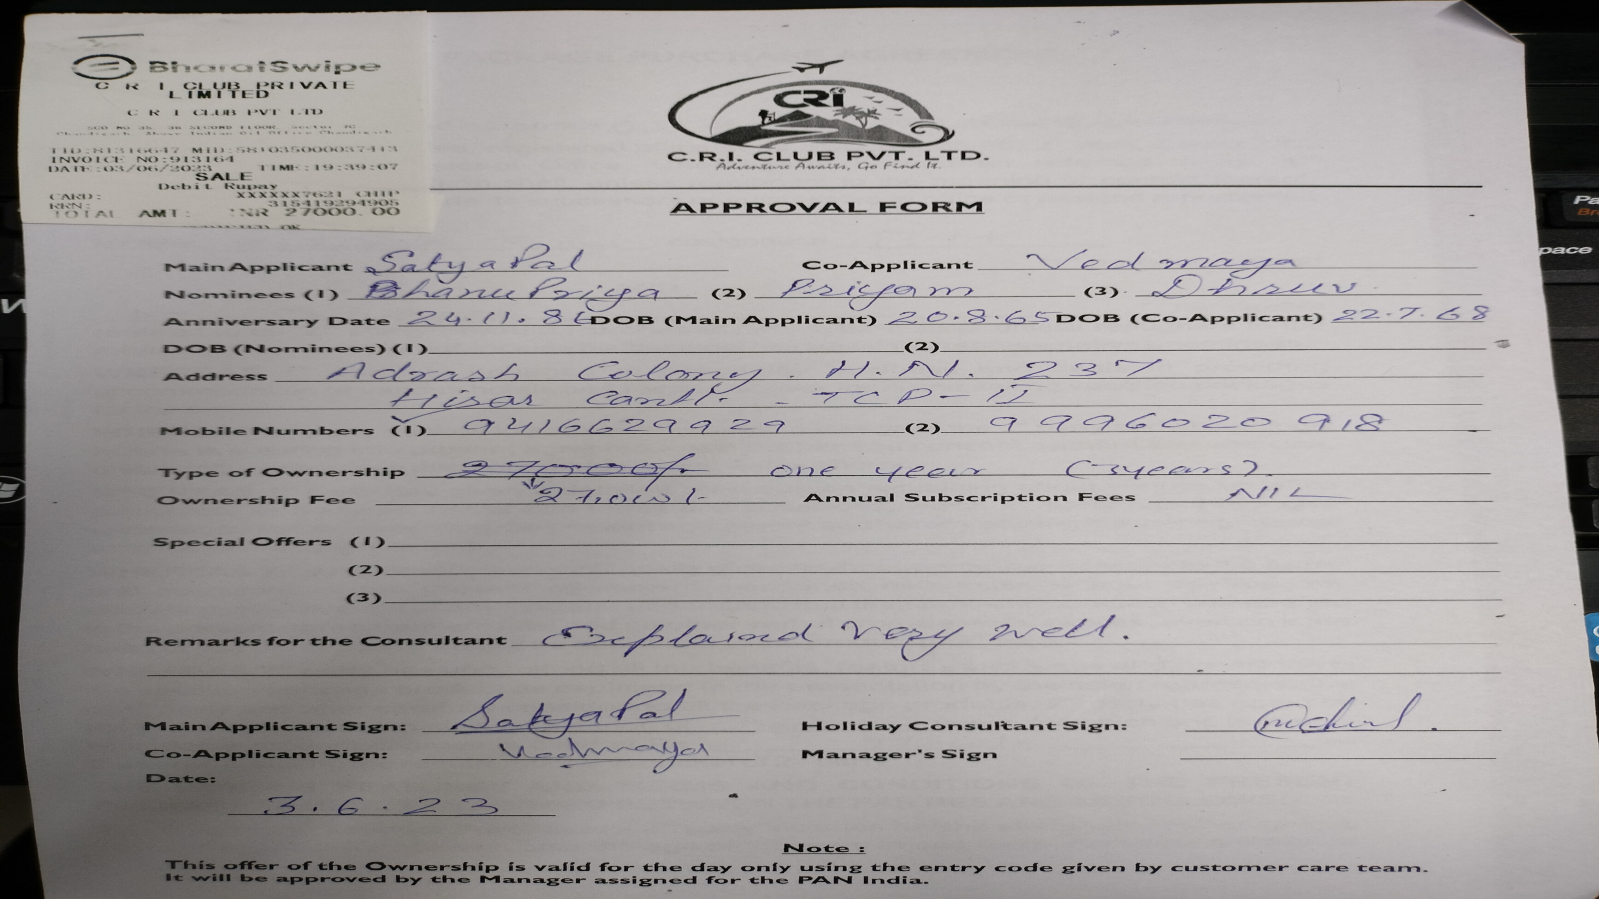 BharatSwipe
C R I CLUB PRIVATE
LIMITED
C R I CLUB PVT LTD
SCO No 35, 36 SECOND FLOOR, Sector 7C
TID:81316647 MID:581035000037413
INVOICE NO:913164
DATE:03/06/2023 TIME:19:39:07
SALE
Debit Rupay
CARD: XXXXXX7621 CHIP
RRN: 315419294905
TOTAL AMT: INR 27000.00
CRI
C.R.I. CLUB PVT. LTD.
Adventure Awaits, Go Find It.
APPROVAL FORM
Main Applicant Satya Pal Co-Applicant Vedmaya
Nominees (1) BhanuPriya (2) Priyam (3) Dhruv.
Anniversary Date 24.11.86 DOB (Main Applicant) 20.8.65 DOB (Co-Applicant) 22.7.68
DOB (Nominees) (1) (2)
Address Adrash Colony. H.N. 237
Hisar Cantt. - TCP-II
Mobile Numbers (1) 9416629929 (2) 9996020918
Type of Ownership 27000/- one year (3years)
Ownership Fee 27,000/- Annual Subscription Fees NIL
Special Offers (1)
(2)
(3)
Remarks for the Consultant Explained very well.
Main Applicant Sign: SatyaPal Holiday Consultant Sign:
Co-Applicant Sign: Vedmaya Manager's Sign
Date:
3.6.23
Note :
This offer of the Ownership is valid for the day only using the entry code given by customer care team.
It will be approved by the Manager assigned for the PAN India.